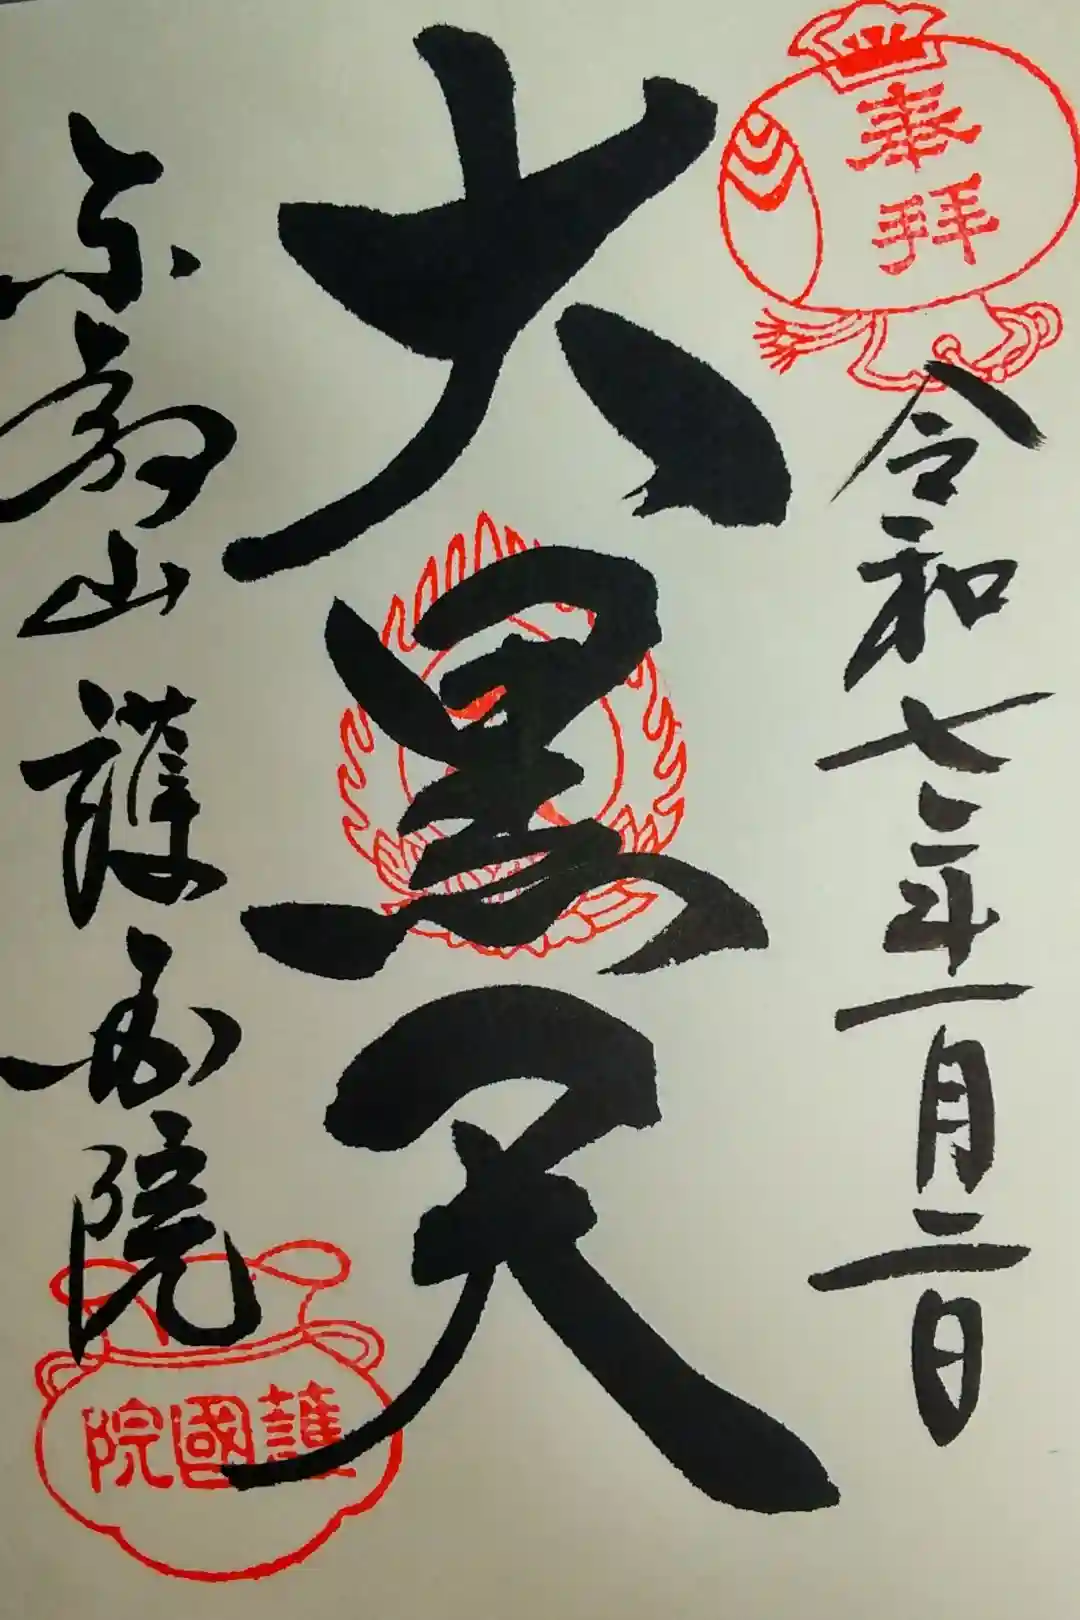 奉拝
令和七年一月二日
大黒天
東叡山 護国院
護國院